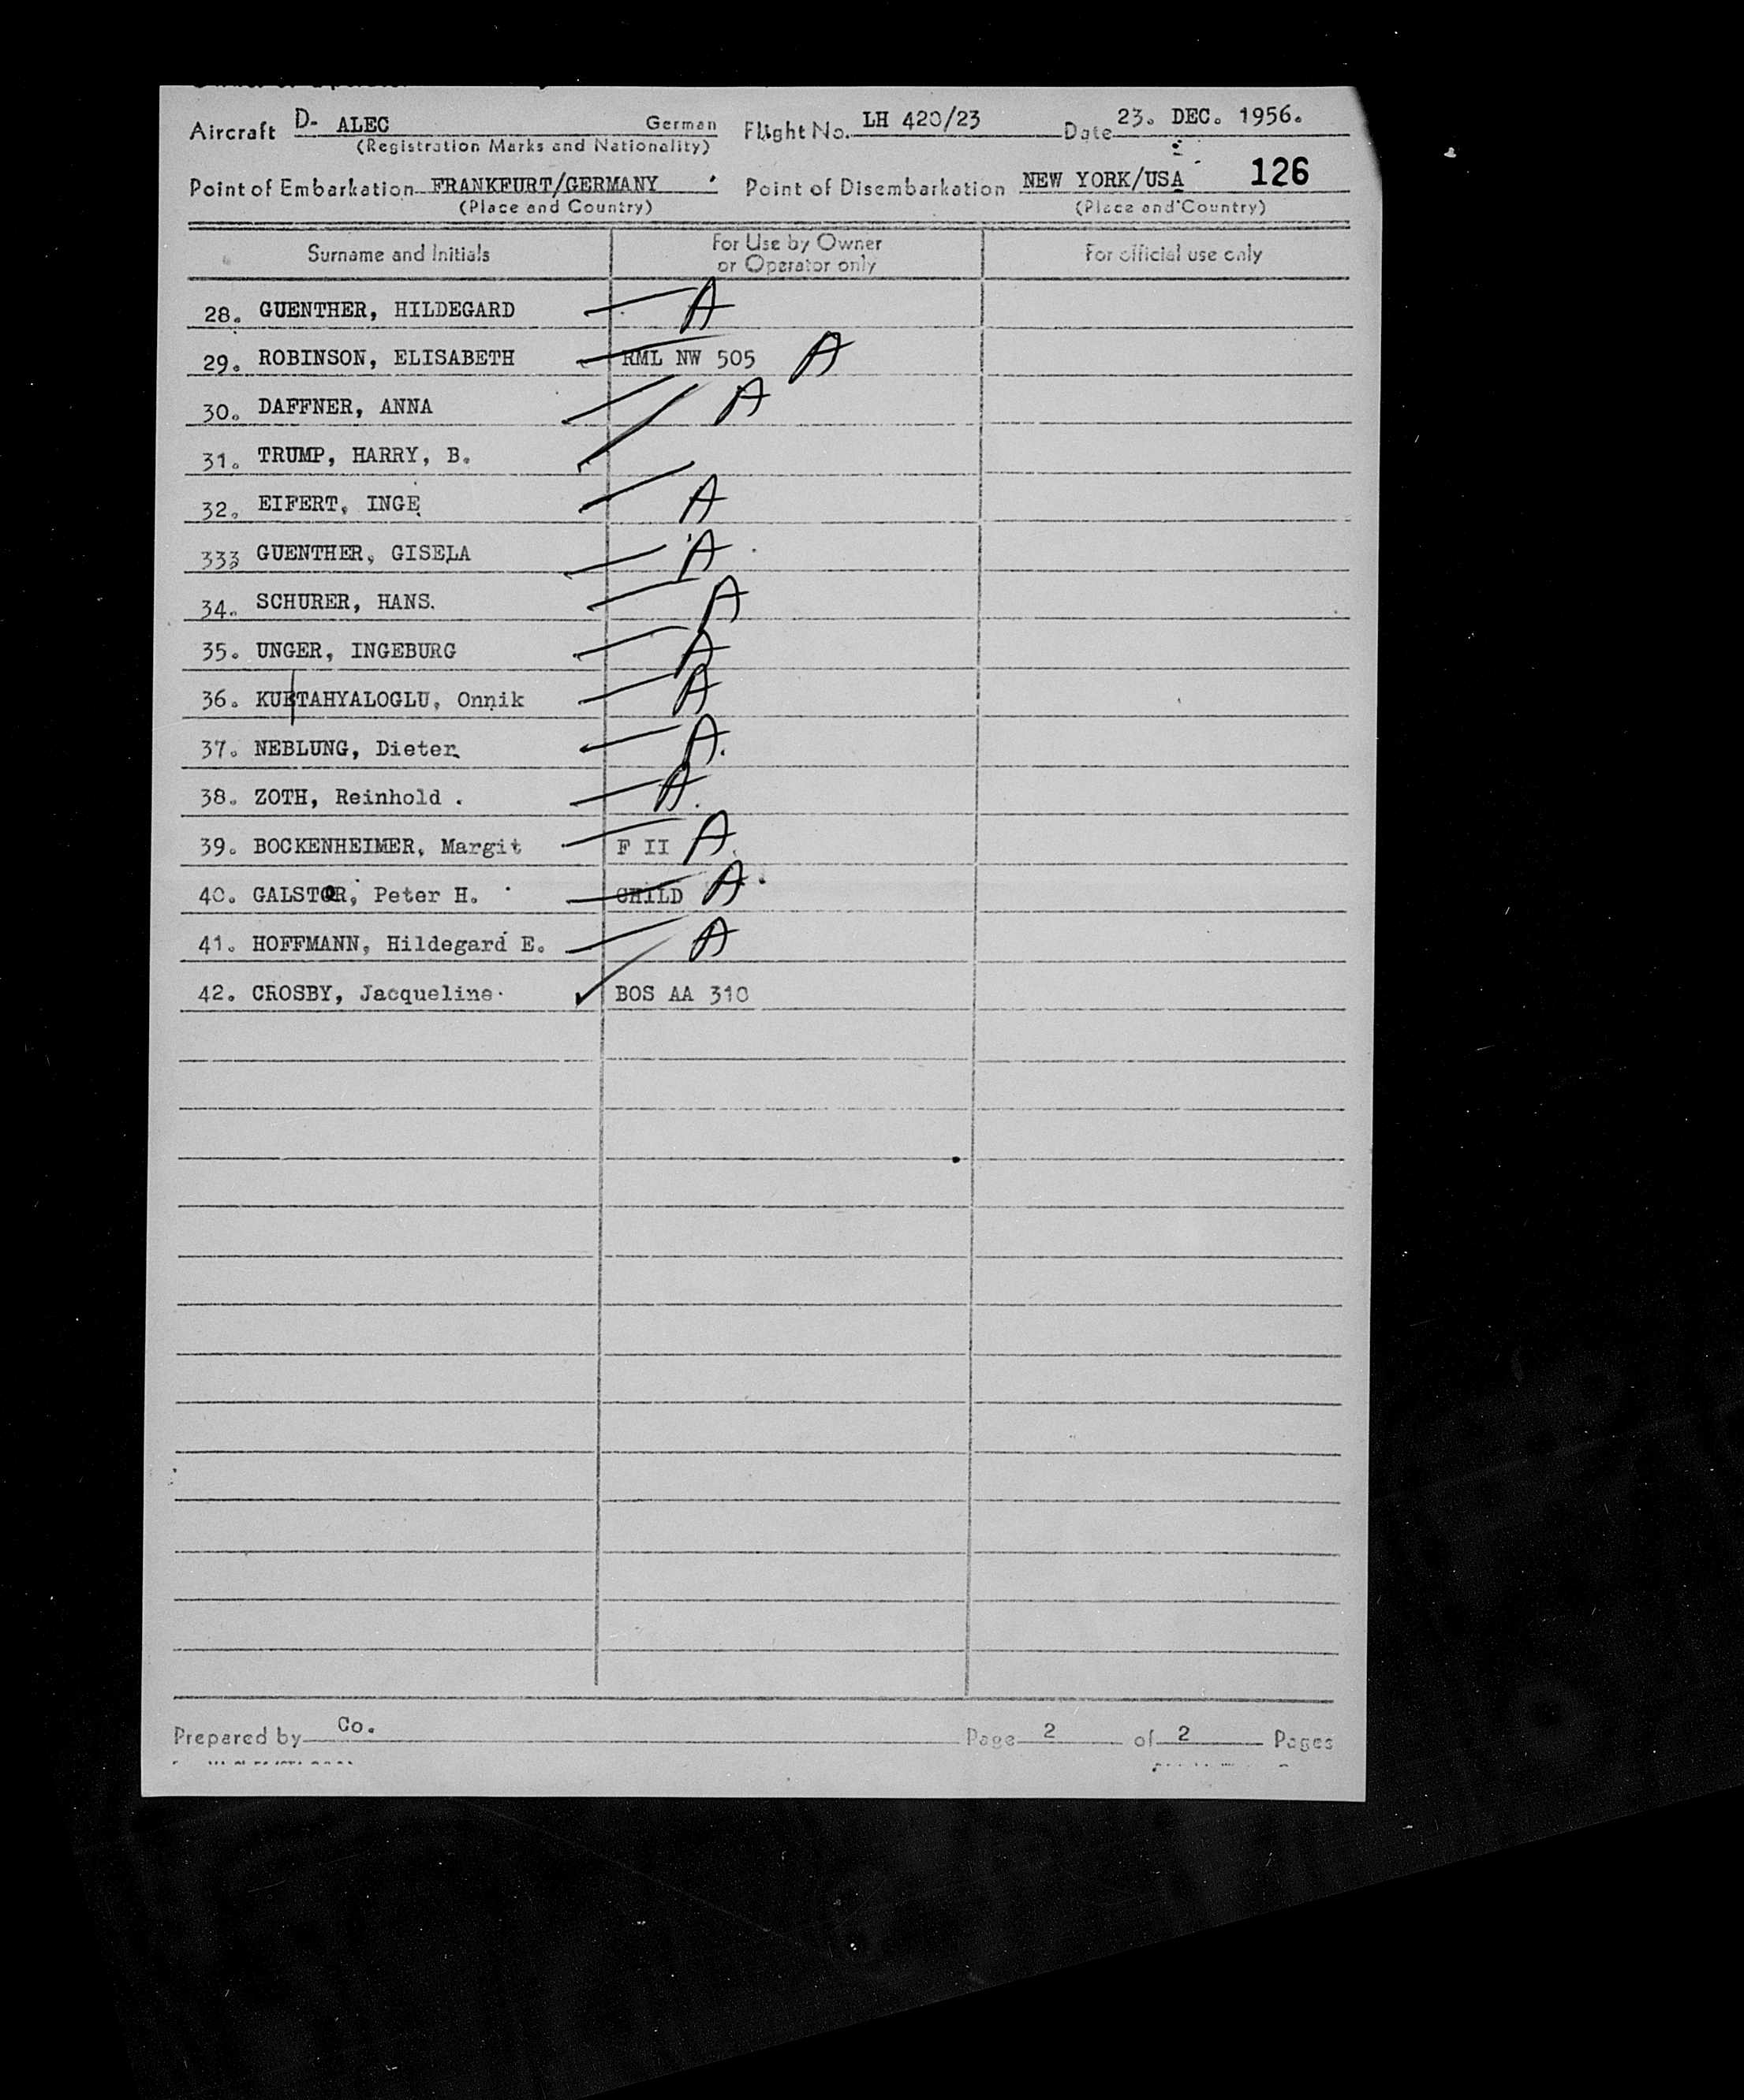 Aircraft D- ALEC German Flight No. LH 420/23 Date 23. DEC. 1956.
(Registration Marks and Nationality)
Point of Embarkation FRANKFURT/GERMANY Point of Disembarkation NEW YORK/USA 126
(Place and Country) (Place and Country)
Surname and Initials For Use by Owner or Operator only For official use only
28. GUENTHER, HILDEGARD A
29. ROBINSON, ELISABETH RML NW 505 A
30. DAFFNER, ANNA A
31. TRUMP, HARRY, B.
32. EIFERT, INGE A
333 GUENTHER, GISELA A
34. SCHURER, HANS. A
35. UNGER, INGEBURG A
36. KUETAHYALOGLU, Onnik A
37. NEBLUNG, Dieter A.
38. ZOTH, Reinhold . A.
39. BOCKENHEIMER, Margit F II A
40. GALSTOR, Peter H. CHILD A
41. HOFFMANN, Hildegard E. A
42. CROSBY, Jacqueline BOS AA 310
Prepared by Co. Page 2 of 2 Pages